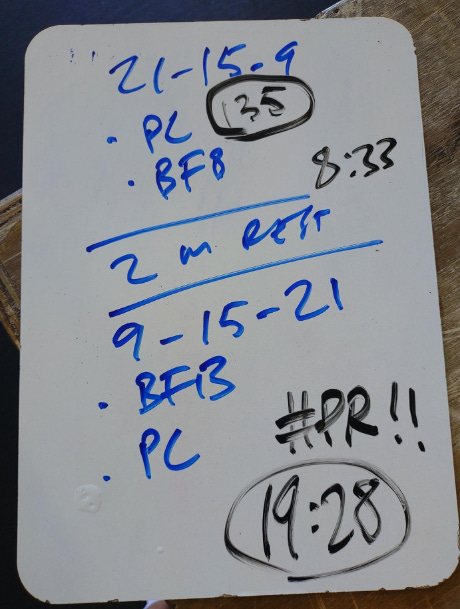 21-15-9
• PC 135
• BFB 8:33
2 m REST
9-15-21
• BFB
• PC #PR!!
19:28